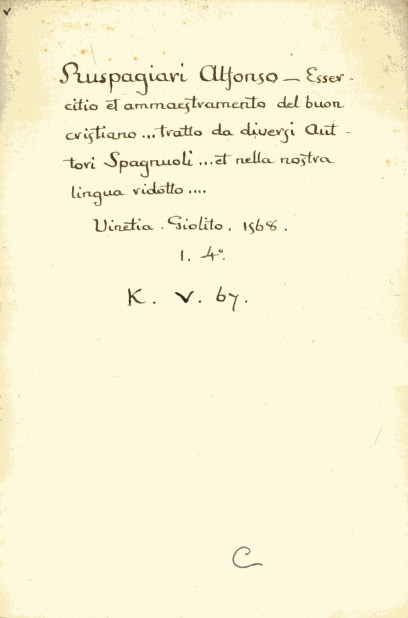 Ruspagiari Alfonso — Esser-
citio et ammaestramento del buon
cristiano ... tratto da diversi Aut-
tori Spagnuoli ... et nella nostra
lingua ridotto ....
Vinetia . Giolito . 1568 .
1. 4º.
K. V. 67.
C